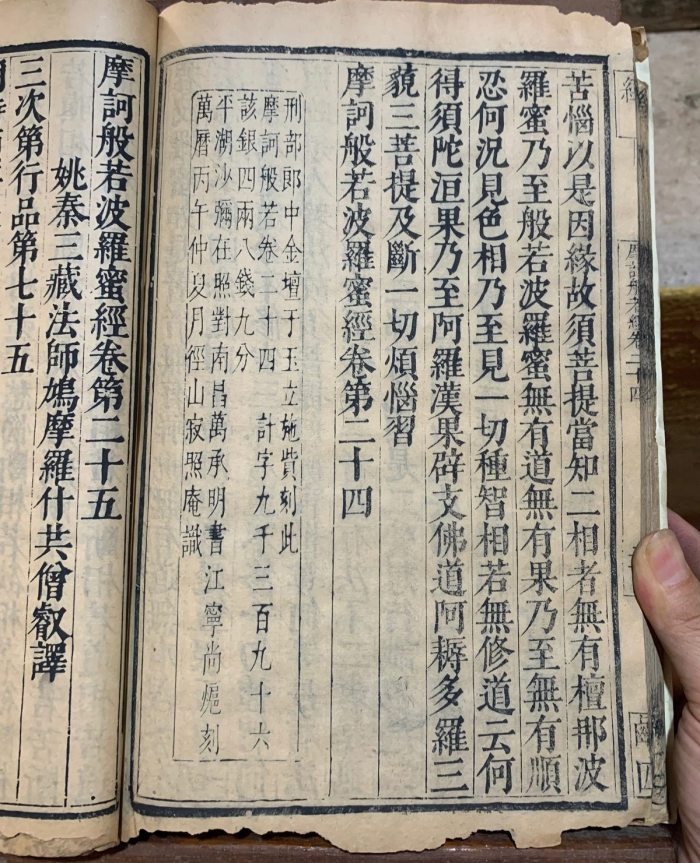 苦惱以是因緣故須菩提當知二相者無有檀那波
羅蜜乃至般若波羅蜜無有道無有果乃至無有順
忍何況見色相乃至見一切種智相若無修道云何
得須陀洹果乃至阿羅漢果辟支佛道阿耨多羅三
藐三菩提及斷一切煩惱習
摩訶般若波羅蜜經卷第二十四
刑部郎中金壇于玉立施貲刻此
摩訶般若卷二十四 計字九千三百九十六
該銀四兩八錢九分
平湖沙彌在照對南昌萬承明書江寧尚熜刻
萬曆丙午仲夏月徑山寂照庵識
摩訶般若波羅蜜經卷第二十五
姚秦三藏法師鳩摩羅什共僧叡譯
三次第行品第七十五
經
摩訶般若經卷二十四
四